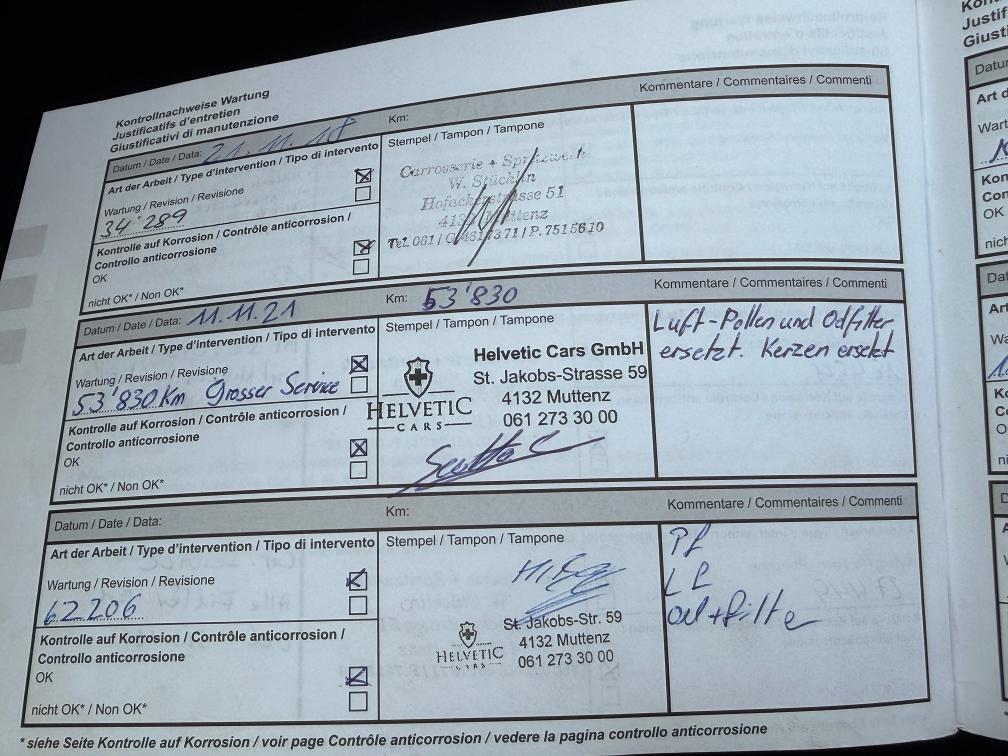 Kontrollnachweise Wartung
Justificatifs d'entretien
Giustificativi di manutenzione
Datum / Date / Data: 21.11.18
Km:
Kommentare / Commentaires / Commenti
Art der Arbeit / Type d'intervention / Tipo di intervento
Stempel / Tampon / Tampone
Wartung / Revision / Revisione
34'289
Kontrolle auf Korrosion / Contrôle anticorrosion /
Controllo anticorrosione
OK
nicht OK* / Non OK*
Carrosserie + Spritzwerk
W. Stücklin
Hofackerstrasse 51
4132 Muttenz
Tel. 061 / G. 4617371 / P. 7515610
Datum / Date / Data: 11.11.21
Km: 53'830
Kommentare / Commentaires / Commenti
Art der Arbeit / Type d'intervention / Tipo di intervento
Stempel / Tampon / Tampone
Wartung / Revision / Revisione
53'830 Km Grosser Service
Kontrolle auf Korrosion / Contrôle anticorrosion /
Controllo anticorrosione
OK
nicht OK* / Non OK*
HELVETIC
CARS
Helvetic Cars GmbH
St. Jakobs-Strasse 59
4132 Muttenz
061 273 30 00
Luft-Pollen und Ödfilter
ersetzt. Kerzen ersetzt
Datum / Date / Data:
Km:
Kommentare / Commentaires / Commenti
Art der Arbeit / Type d'intervention / Tipo di intervento
Stempel / Tampon / Tampone
Wartung / Revision / Revisione
62206
Kontrolle auf Korrosion / Contrôle anticorrosion /
Controllo anticorrosione
OK
nicht OK* / Non OK*
HELVETIC
CARS
St. Jakobs-Str. 59
4132 Muttenz
061 273 30 00
Pf
Lf
Oel+filte
* siehe Seite Kontrolle auf Korrosion / voir page Contrôle anticorrosion / vedere la pagina controllo anticorrosione